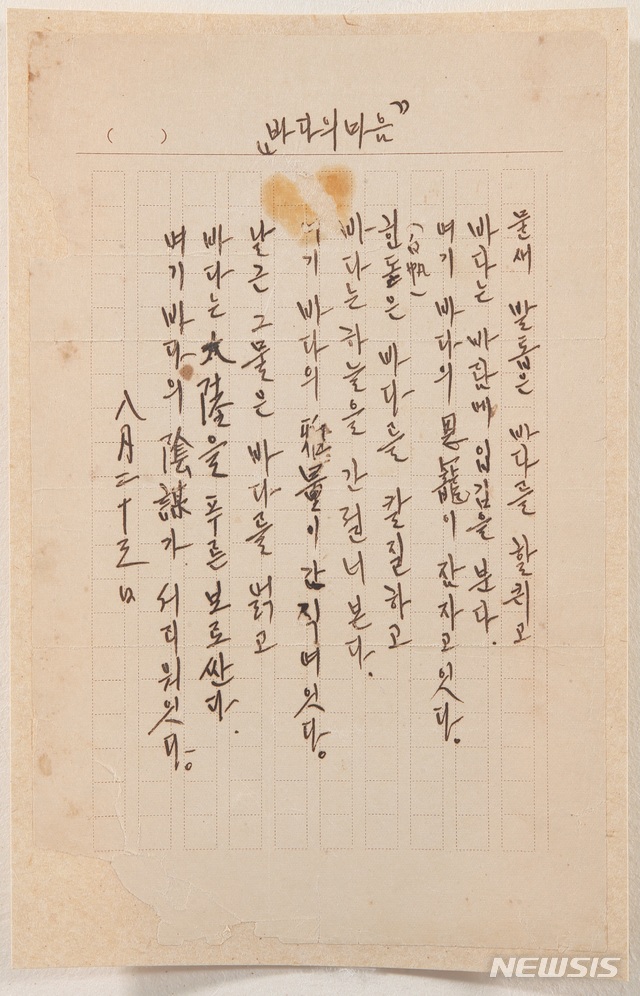 ( )
„바다의 마음"
물새 발톱은 바다를 할퀴고
바다는 바람에 입김을 분다.
여기 바다의 恩寵이 잠자고잇다.
흰돛은 바다를 칼질하고
(白帆)
바다는 하늘을 간질너본다.
여기 바다의 雅量이 간직여잇다.
낡근 그물은 바다를 얽고
바다는 大陸을 푸른 보로싼다.
여기 바다의 陰謀가 서리워잇다.
八月二十三日
NEWSIS